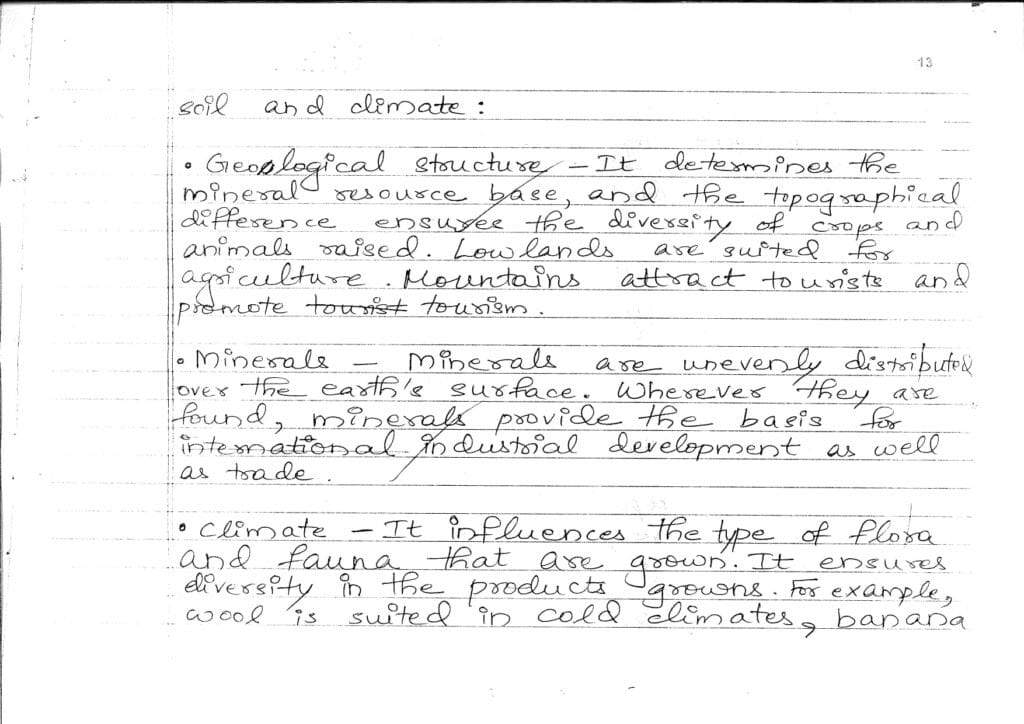 13
soil and climate :
• Geological structure – It determines the
mineral resource base, and the topographical
difference ensures the diversity of crops and
animals raised. Lowlands are suited for
agriculture. Mountains attract tourists and
promote tourist tourism.
• Minerals – Minerals are unevenly distributed
over the earth's surface. Wherever they are
found, minerals provide the basis for
international industrial development as well
as trade.
• Climate – It influences the type of flora
and fauna that are grown. It ensures
diversity in the products growns. For example,
wool is suited in cold climates, banana